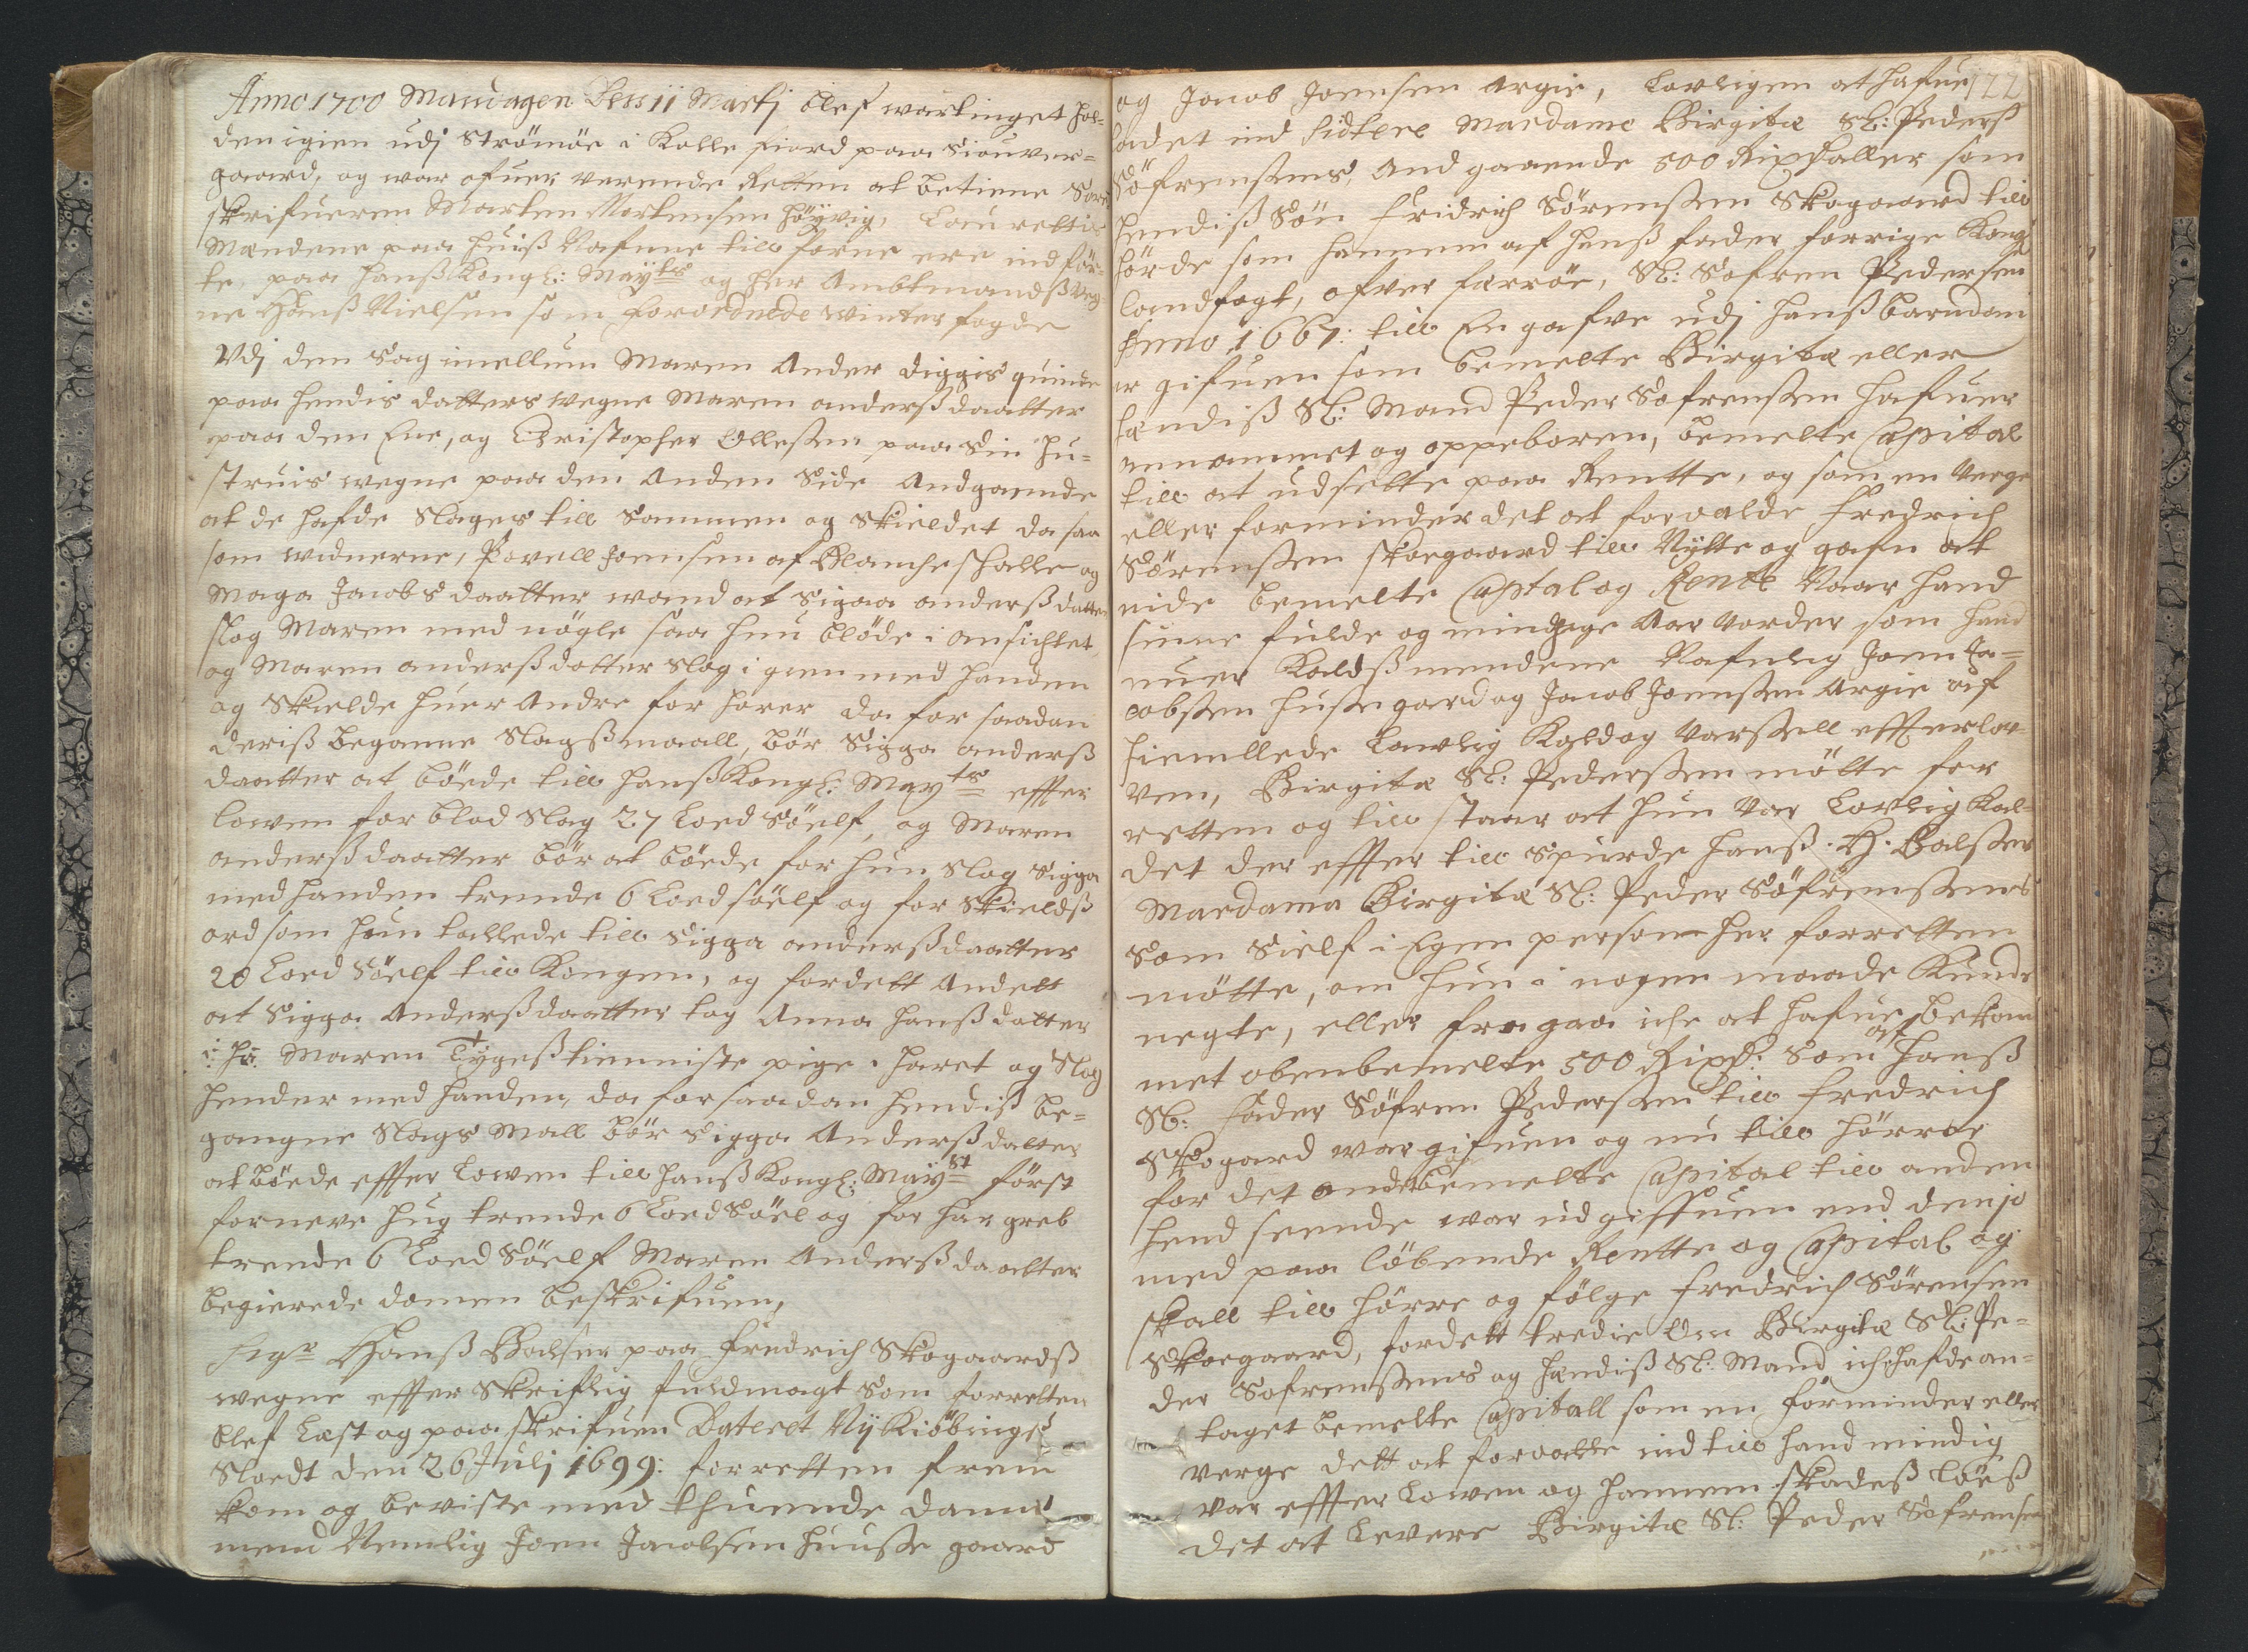 Anno 1700 Mandagen Dess 11 Martj blef wartinget hol-
den igien udj Strömöe i Kolle fiord paa Siouver=
gaard, og war ofuer verende Retten at betiene Soren
skrifueren Marten Mortensen höÿvig, Lauretties
Mændene paa huiß Nafnne till forne ere ind för-
te, paa hanß Kongl: Maÿts og her Ambtmandß weg-
ne Hanß Nielsen som forordnede winter fogde
Vdj den Sag imellum Maren Ander diggis quinde
paa hendis datters wegne Maren anderß daatter
paa den Ene, og Christopher Olleßen paa Sin Hu-
struis wegne paa den Anden Side Andgaaende
at de hafde Slages till Sammen og Skieldet da saa
som widnerne, Povell Joensen af Blancheschalle og
Maga Jacobs daatter wand at Sigga anderß datter
slog Maren med nögle saa hun blöde i ansichtet
og Maren anderß datter slog igien med handen
og Skielde huer Andre for horer da for saadan
deriß begaanne Slagßmaall, bör Sigga anderß
daatter at böede till hanß Kongl: Mayts effter
lowen for blod Slag 27 Loed Söelf, og Maren
anderß daatter bör at böede for hun Slog Sigga
med handen trende 6 Loed söelf og for Skieldß
ord som hun tallede till Sigga anderß daatter
20 Loed Söelf till Kongen, og fordett Andett
at Sigga Anderß daatter tog Anna Hanß datter
i: hä: Maren Tÿgeß tienniste pige i haret og Slog
hender med handen, da for saadan hendiß be=
gangne Slags Mall bör Sigga Anderß datter
at böede effter Lowen till hanß Kongl: Maÿst först
for neve hug trende 6 Loed Söel og for har greb
trende 6 Loed Söelf Maren Anderß daatter
begierede domen beskrifuen,
Sigr Hanß Balser paa Fredrich Skogaardß
wegne effter Skriftlig fuldmagt Som forretten
blef Læst og paa skrifuen Dateret Nÿ Kiöbings
Sloedt den 26 Julj 1699: forretten frem
kom og beviste med thuende danne
mend Nemlig Joen Jacobsen Huusse gaard
122
og Jacob Joensen Argie, Lovligen at hafue
ladet ind sidtere Mardame Birgitæ Sl: Pederß
Söfrensens, And gaaende 500 Rixdaller som
hendiß Sön Fridrich Sörensen Skogaard till
hörde som hannem af hanß fader forrige Kongl
landfogt, ofver færröe, Sl: Sofren Pedersen
Anno 1667: till En gafve udj hanß barndom
er gifuen som bemelte Birgitæ eller
hændiß Sl: Mand Peder Sofrensen hafuer
annammet og oppeboren, bemelte Capital
till at udsette paa Rentte, og som en Verge
eller forminder det at forvalde Fredrich
Sörensen skoegaard till Nÿtte og gafn at
nide bemelte Captal og Rente Naar hand
sinne fulde og mindige Aar Vorder som hand
nuer Kaldßmendene Nafnlig Joen Ja=
cobsen Hussegard og Jacob Joensen Argie af
hiemllede Lavlig Kald og Varsell effter lov-
ven, Birgitæ Sl: Pederßen mötte for
retten og till staar at hun var Lovlig Kal-
det der effter till Spurde Hanß. H. Balser
Mardama Birgitæ Sl: Peder Söfrensens
Som Sielf i Egen person her forretten
mötte, om hun i nogen maade Kunde
negte, eller fra gaa iche at hafue bekom
met obenbemelte 500 Rixd: Som af Hanß
Sl: fader Söfren Pedersen till Fredrich
Skogard war gifuen og nu till hörrer
for det Andet om bemelte Capital till anden
hend seende war ud giffuen end den jo
med paa löbende Rentte og Capital og
skall till hörre og fölge Fredrich Sörensen
Skoegaard, fordett tredie Om Birgitæ Sl: Pe=
der Sofrensens og hændiß Sl: Mand iche hafde an=
taget bemelte Capitall som en forminder eller
verge dett at forvalte ind till hand mindig
var effter Lowen og hannem skadesß löeß
det at Levere Birgitæ Sl: Peder Sofrensen